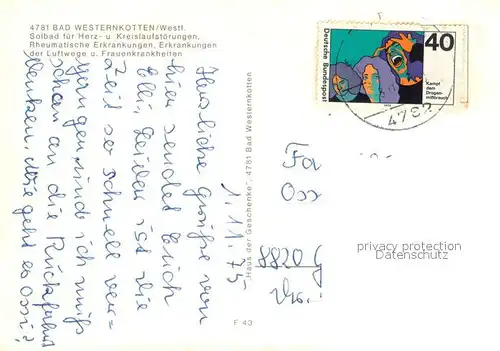 4781 BAD WESTERNKOTTEN/Westf.
Solbad für Herz- u. Kreislaufstörungen,
Rheumatische Erkrankungen, Erkrankungen
der Luftwege u. Frauenkrankheiten
1.11.75
Herzliche Grüße von
hier sendet Euch
Elli, Leider ist die
Zeit so schnell ver=
gangen und ich muß
schon an die Rückfahrt
denken, Wie geht es Ossi?
"Haus der Geschenke", 4781 Bad Westernkotten
F 43
Deutsche Bundespost
40
Kampf
dem
Drogen-
mißbrauch
4782
Fa
Oss
8820 G
privacy protection
Datenschutz